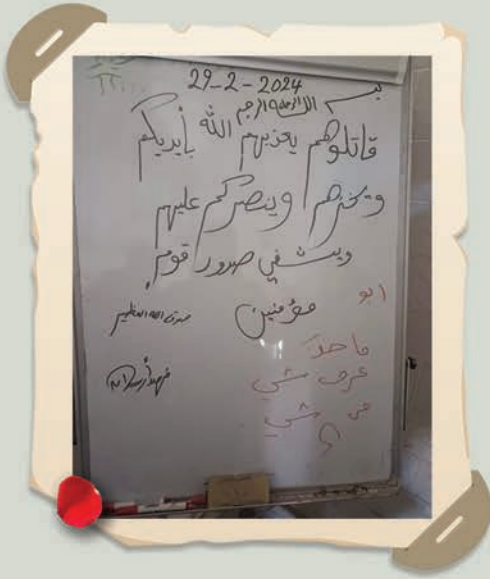 29-2-2024
بسم الله الرحمن الرحيم
قاتلوهم يعذبهم الله بأيديكم
ويخزهم وينصركم عليهم
ويشفي صدور قوم
مؤمنين
صدق الله العظيم
ابو
ما حد
عرف شي
من شي